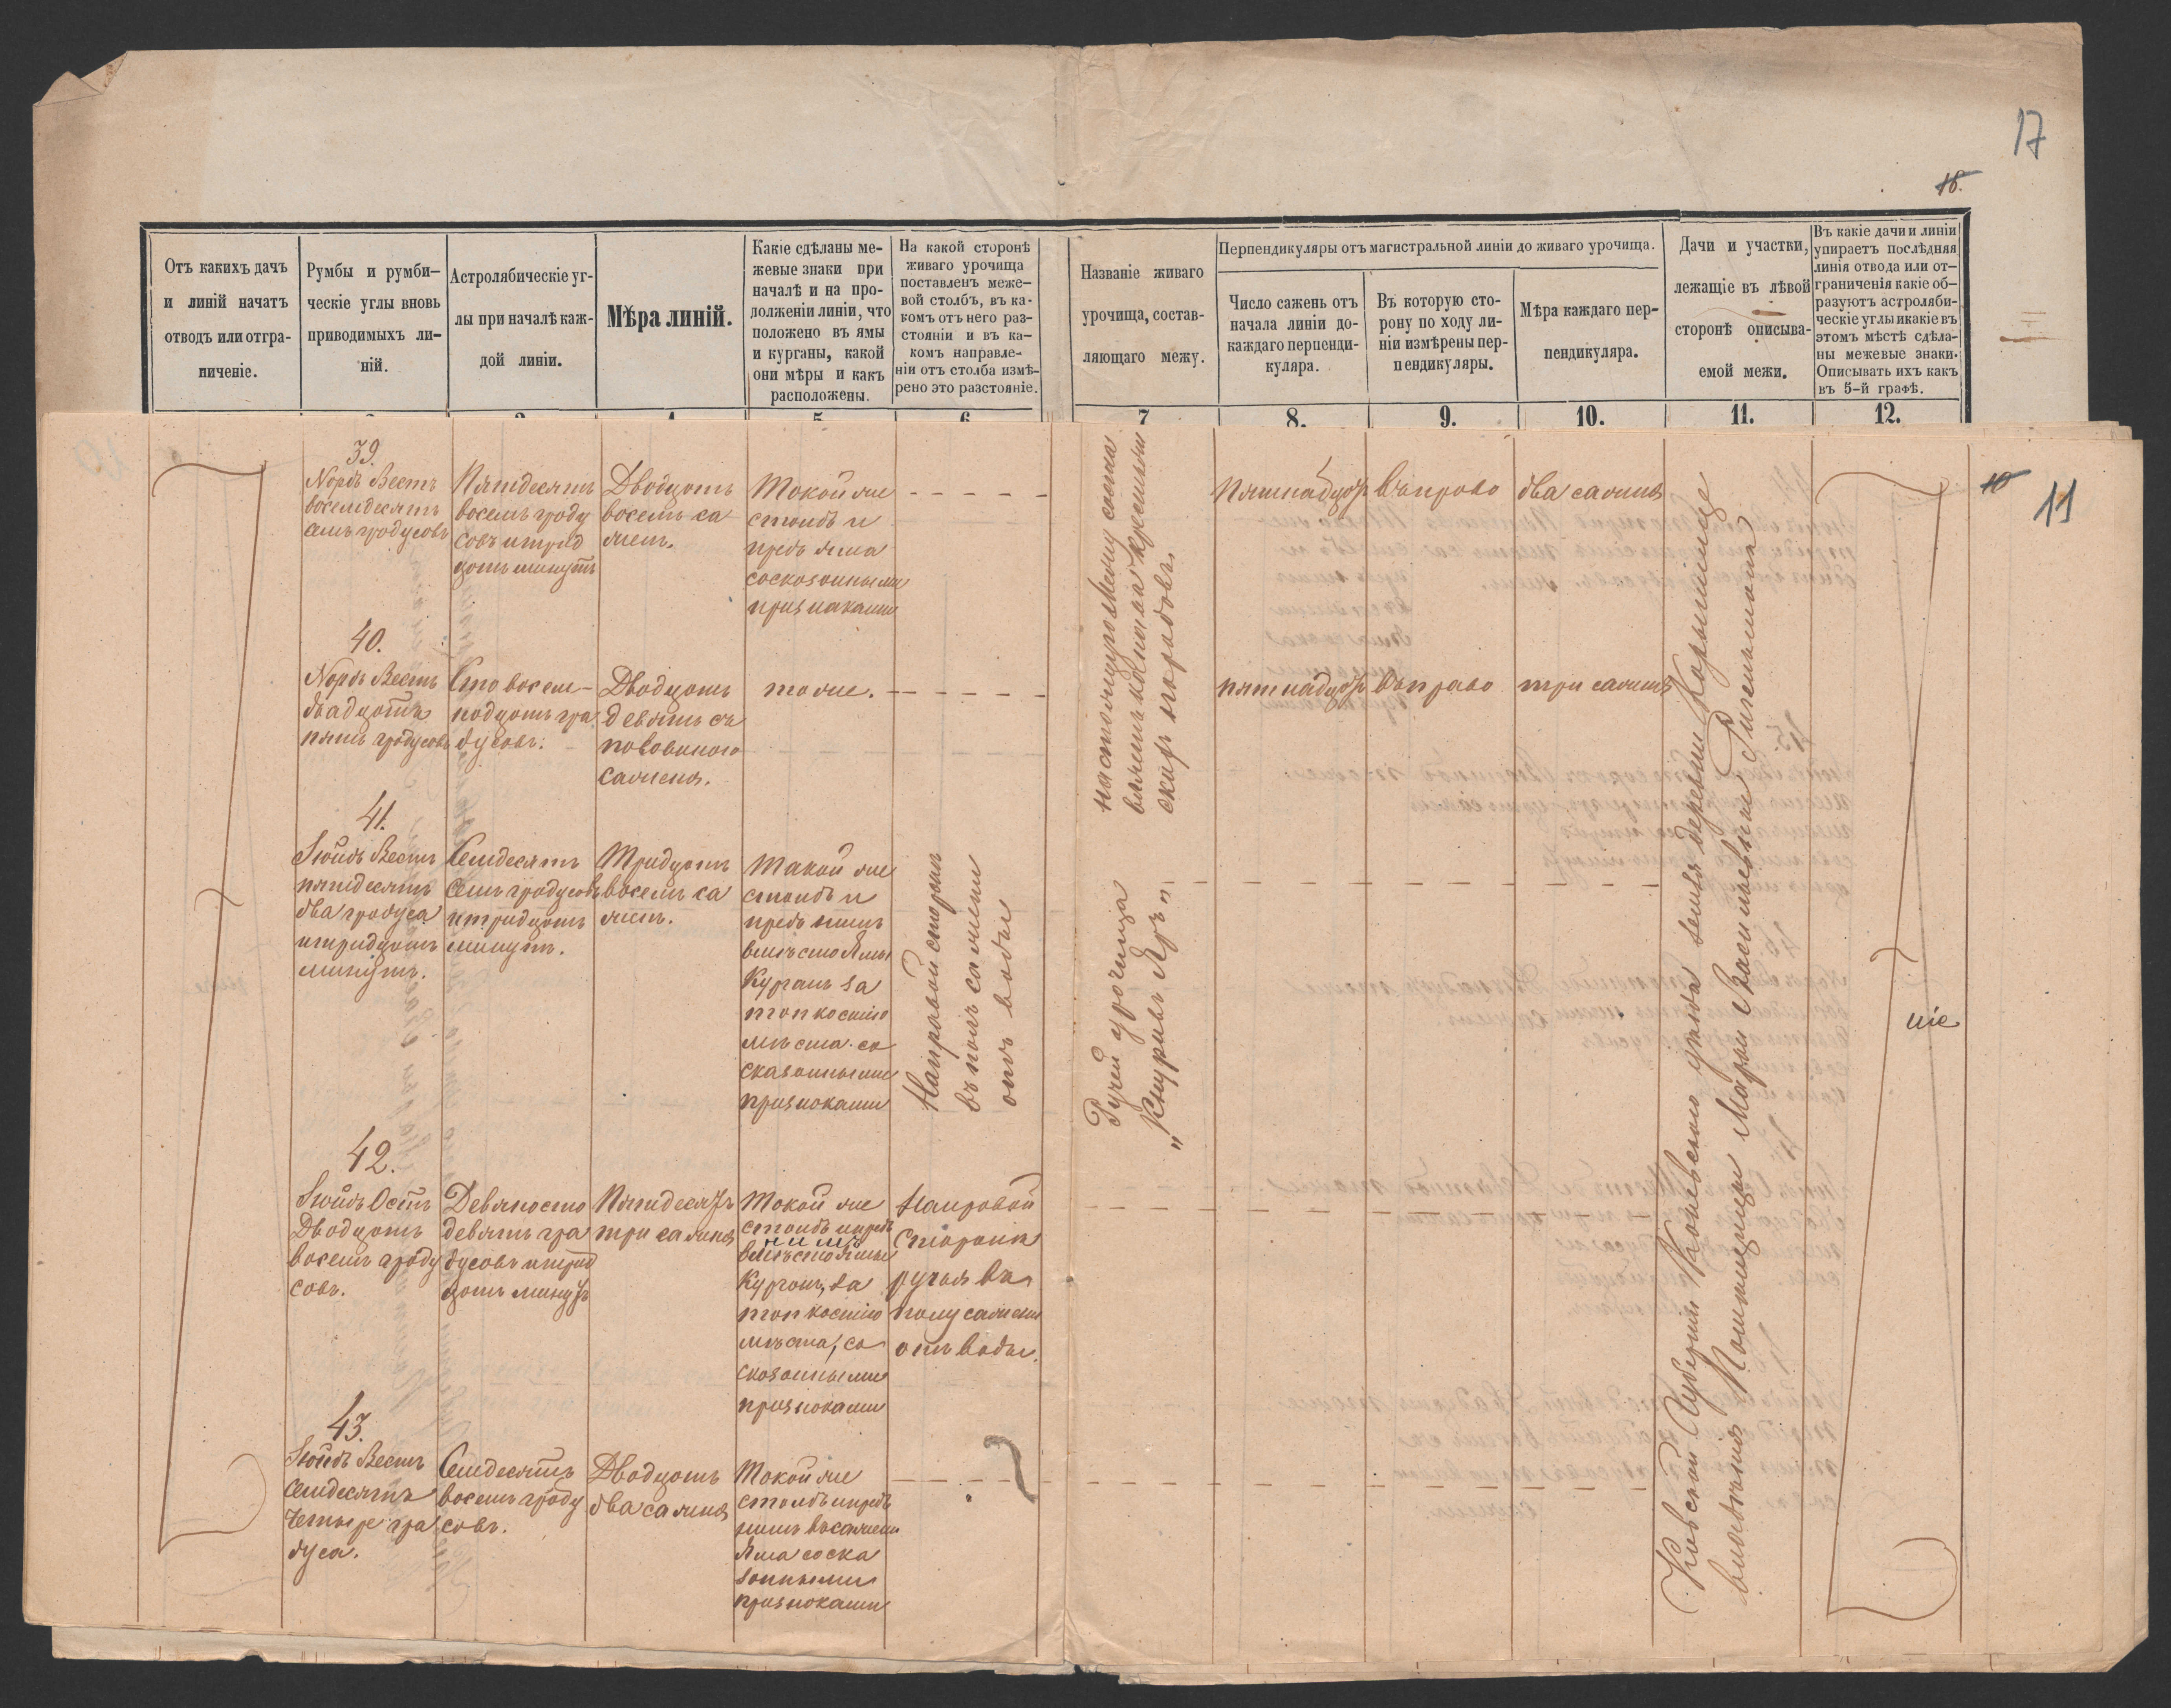 17
18.
Отъ какихъ дачъ
и линій начатъ
отводъ или отгра-
ниченіе.
Румбы и румби-
ческіе углы вновь
приводимыхъ ли-
ній.
Астролябическіе уг-
лы при началѣ каж-
дой линіи.
Мѣра линій.
Какіе сдѣланы ме-
жевые знаки при
началѣ и на про-
долженіи линіи, что
положено въ ямы
и курганы, какой
они мѣры и какъ
расположены.
На какой сторонѣ
живаго урочища
поставленъ меже-
вой столбъ, въ ка-
комъ отъ него раз-
стояніи и въ ка-
комъ направле-
ніи отъ столба измѣ-
рено это разстояніе.
Названіе живаго
урочища, состав-
ляющаго межу.
Перпендикуляры отъ магистральной линіи до живаго урочища.
Число сажень отъ
начала линіи до-
каждаго перпенди-
куляра.
Въ которую сто-
рону по ходу ли-
ніи измѣрены пер-
пендикуляры.
Мѣра каждаго пер-
пендикуляра.
Дачи и участки,
лежащіе въ лѣвой
сторонѣ описыва-
емой межи.
Въ какіе дачи и линіи
упираетъ послѣдняя
линія отвода или от-
граниченія какіе об-
разуютъ астроляби-
ческіе углы и какіе въ
этомъ мѣстѣ сдѣла-
ны межевые знаки.
Описывать ихъ какъ
въ 5-й графѣ.
7
8.
9.
10.
11.
12.
10
11
39.
Нордъ Вестъ
восемдесятъ
семъ градусовъ
Пятидесятъ
восемь граду
совъ и трид
цать минутъ
Двадцать
восемь са
жень.
Такой же
столбъ и
предъ яма
сосказанными
признаками
пятнадцать
въ право
два сажня
40.
Нордъ Вестъ
двадцать
пять градусовъ
Сто восем-
надцать гра
дусовъ.
Двадцать
девять съ
половиною
сажень.
тоже.
пятнадцать
въ право
три сажня
41.
Зюйдъ Вестъ
пятдесятъ
два градуса
и тридцать
минутъ.
Семдесятъ
семъ градусовъ
и тридцать
минутъ.
Тридцать
восемь са
жень.
Такой же
столбъ и
предъ нимъ
вмѣсто Ямы
Курганъ за
топкостію
мѣста со
сказанными
признаками
На правой сторонѣ
въ полъ сажени
отъ воды
42.
Зюйдъ Остъ
Двадцать
восемь граду
совъ.
Девяносто
девять гра
дусовъ и трид
цать минутъ
Пятидесятъ
три сажня
Такой же
столбъ и предъ
нимъ
вмѣсто Ямы
Курганъ, за
топкостію
мѣста, со
сказанными
признаками
На правой
сторонѣ
ручья въ
полу сажени
отъ воды.
43.
Зюйдъ Вестъ
семдесятъ
четыре гра
дуса.
Семдесятъ
восемь граду
совъ.
Двадцать
два сажня
Такой же
столбъ и предъ
нимъ въ сажени
Яма соска
занными
признаками
Ручей урочища
„Кнуривъ Яръ"
Кіевской Губерніи Каневскаго уѣзда земля деревни
Помѣщицы Маріи Васильевны
ніе